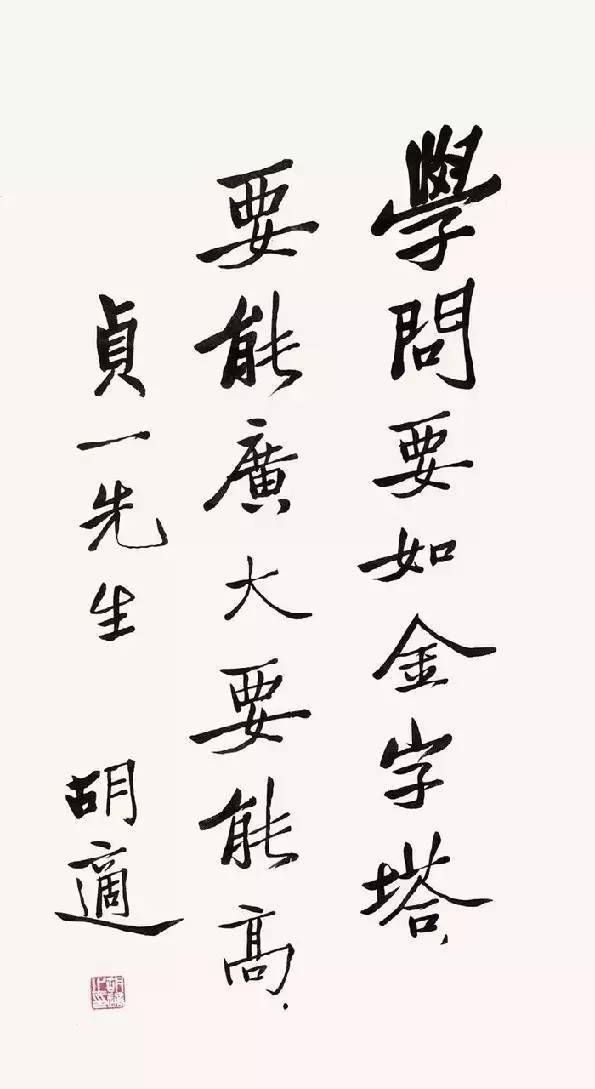 學問要如金字塔，
要能廣大要能高.
貞一先生
胡適
胡適之印